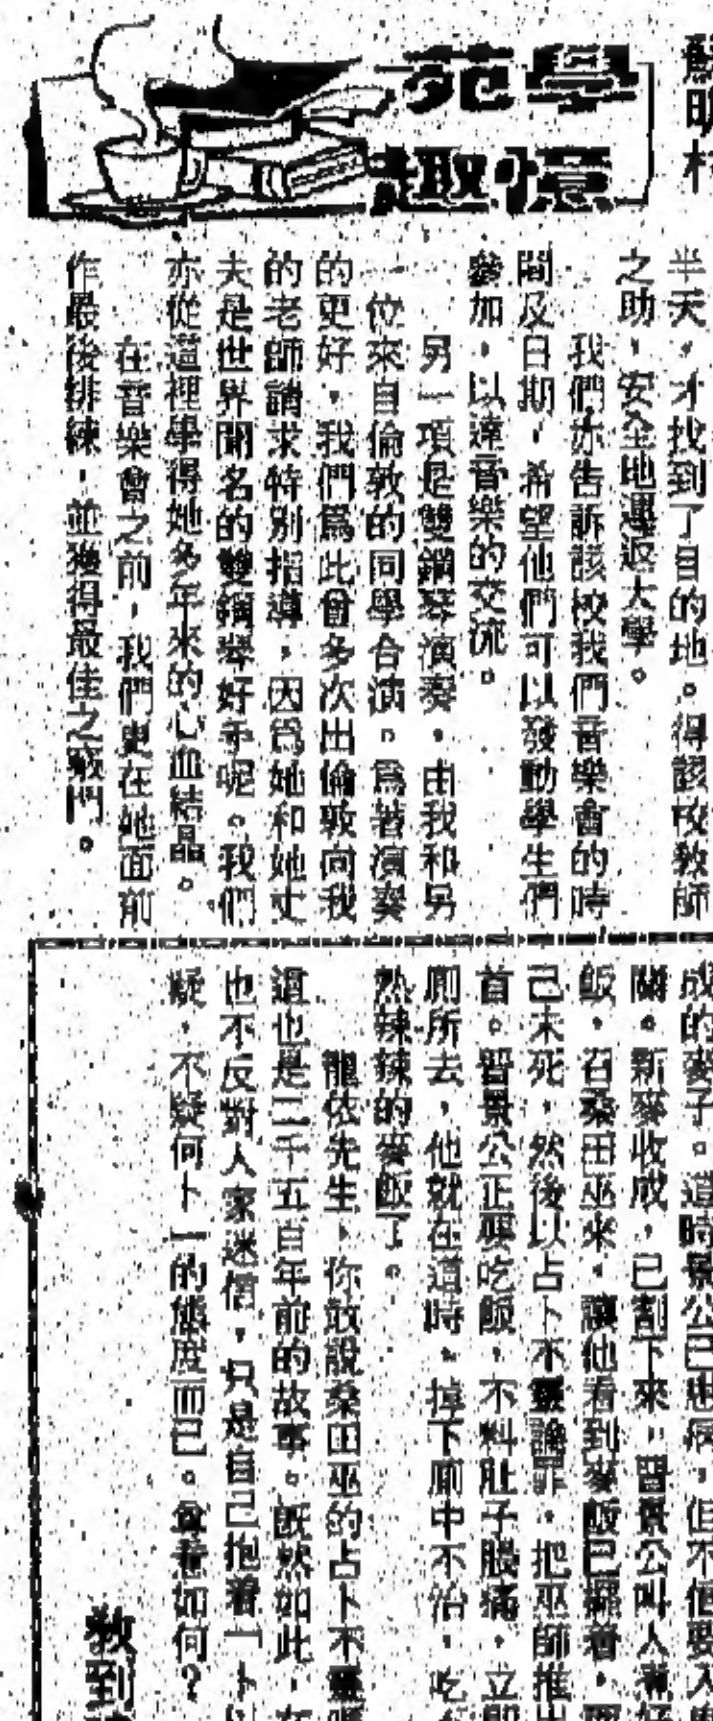 學苑
憶趣
蘇明村
半天，才找到了目的地。得該校教師
之助，安全地運返大學。
我們亦告訴該校我們音樂會的時
間及日期，希望他們可以發動學生們
參加，以達音樂的交流。
另一項是雙鋼琴演奏，由我和另
一位來自倫敦的同學合演。爲著演奏
的更好，我們爲此曾多次出倫敦向我
的老師請求特別指導，因爲她和她丈
夫是世界聞名的雙鋼琴好手呢。我們
亦從這裡學得她多年來的心血結晶。
在音樂會之前，我們更在她面前
作最後排練，並獲得最佳之竅門。
成的麥子。這時景公已患病，但不信要入
關。新麥收成，已割下來，晋景公叫人煮好
飯，召桑田巫來，讓他看到麥飯已擺着，而
己未死，然後以占卜不靈論罪，把巫師推出
首。晋景公正要吃飯，不料肚子脹痛，立即
厠所去，他就在這時，掉下厠中不治，吃
熱辣辣的麥飯了。
龍依先生，你敢說桑田巫的占卜不靈嗎
這也是二千五百年前的故事。既然如此，在
也不反對人家迷信，只是自己抱着一卜以
疑，不疑何卜一的態度而已。尊意如何？
敎到